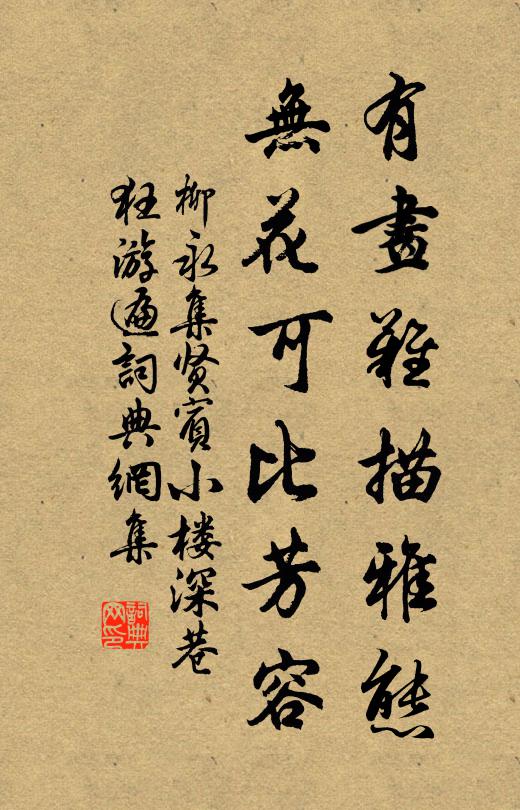 有畫難描雅態
無花可比芳容
柳永集贤賓小楼深巷
狂游遍詞典網集
詞典网印